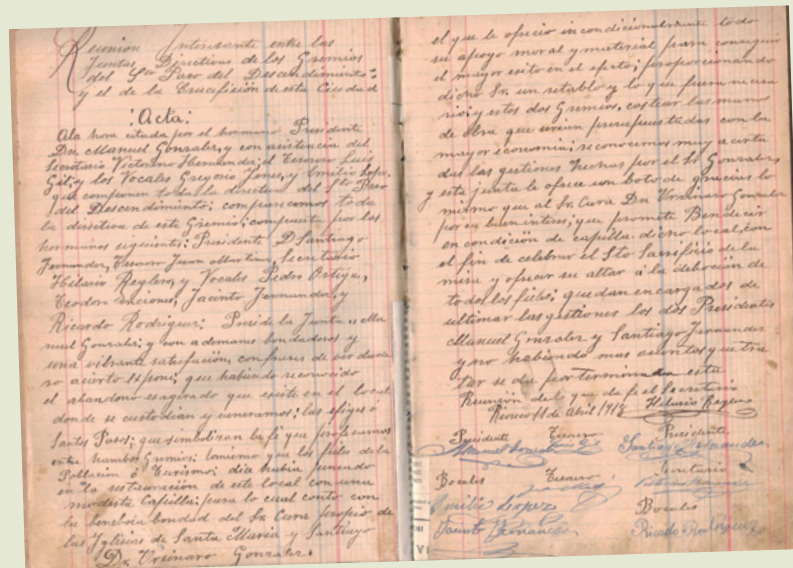 Reunion Interesante entre las
Juntas Directivas de los Gremios
del Sto Paso del Descendimiento:
y el de la Crucifición de esta Ciudad
"Acta"
Ala hora citada por el hermano Presidente
Dn. Manuel Gonzalez, y con asistencia del
Secretario Victorino Hernandez, el Tesorero Luis
Gil; y los Vocales Gregorio Torres, y Emilio Lopez,
que componen toda la directiva del Sto Paso
del Descendimiento; comparecemos toda
la directiva de este Gremio; compuesta por los
hermanos siguientes: Presidente D Santiago
Fernandez, Tesorero Juan Martinez, Secretario
Hilario Reglero, y Vocales Pedro Ortega,
Teodoro Jacinto Fernandez, y
Ricardo Rodriguez: Preside la Junta Ma
nuel Gonzalez; y con ademanes bondadosos y
una vibrante satisfación, con frases de verdade
ro acierto Expone; que habiendo reconocido
el abandono exagerado que existe en el local
donde se custodian y veneramos; las efigies ó
Santos Pasos; que simbolizan la fé que profesamos
entre hambos Gremios; lo mismo que los fieles de la
Población ó Turismo; dia habia pensado
en la restauración de este local con una
modesta Capilla; para lo cual contó con
la bondad del Sr Cura propio de
las Yglesias de Santa Maria y Santiago
Dn. Ursinaro Gonzalez.
el que le ofrecio incondicionalmente todo
su apoyo moral y material para conseguir
el mayor exito en el efecto; proporcionando
dicho Sr. un retablo y lo que fuera necesa
rio; y estos dos Gremios, costear las manos
de obra que serian presupuestadas con la
mayor economia; reconocemos muy acerta
das las gestiones hechas por el Sr Gonzalez
y esta junta le ofrece un boto de gracias lo
mismo que al Sr. Cura Dn Ursinaro Gonzalez
por su buen interes; que promete Bendecir
en condición de capilla dicho local, con
el fin de celebrar el Sto Sacrificio de la
misa y ofrecer su altar a la deboción de
todos los fieles; quedan encargados de
ultimar las gestiones los dos Presidentes
Manuel Gonzalez y Santiago Fernandez
y no habiendo mas asuntos que tra
tar se da por terminada esta
Reunión de la que da fe el Secretario
Rioseco 11 de Abril 1948 Hilario Reglero
Presidente Tesorero Presidente
Manuel Gonzalez Santiago Fernandez
Bocales Tesorero Secretario
Emilio Lopez Bocales
Jacinto Fernandez Ricardo Rodriguez